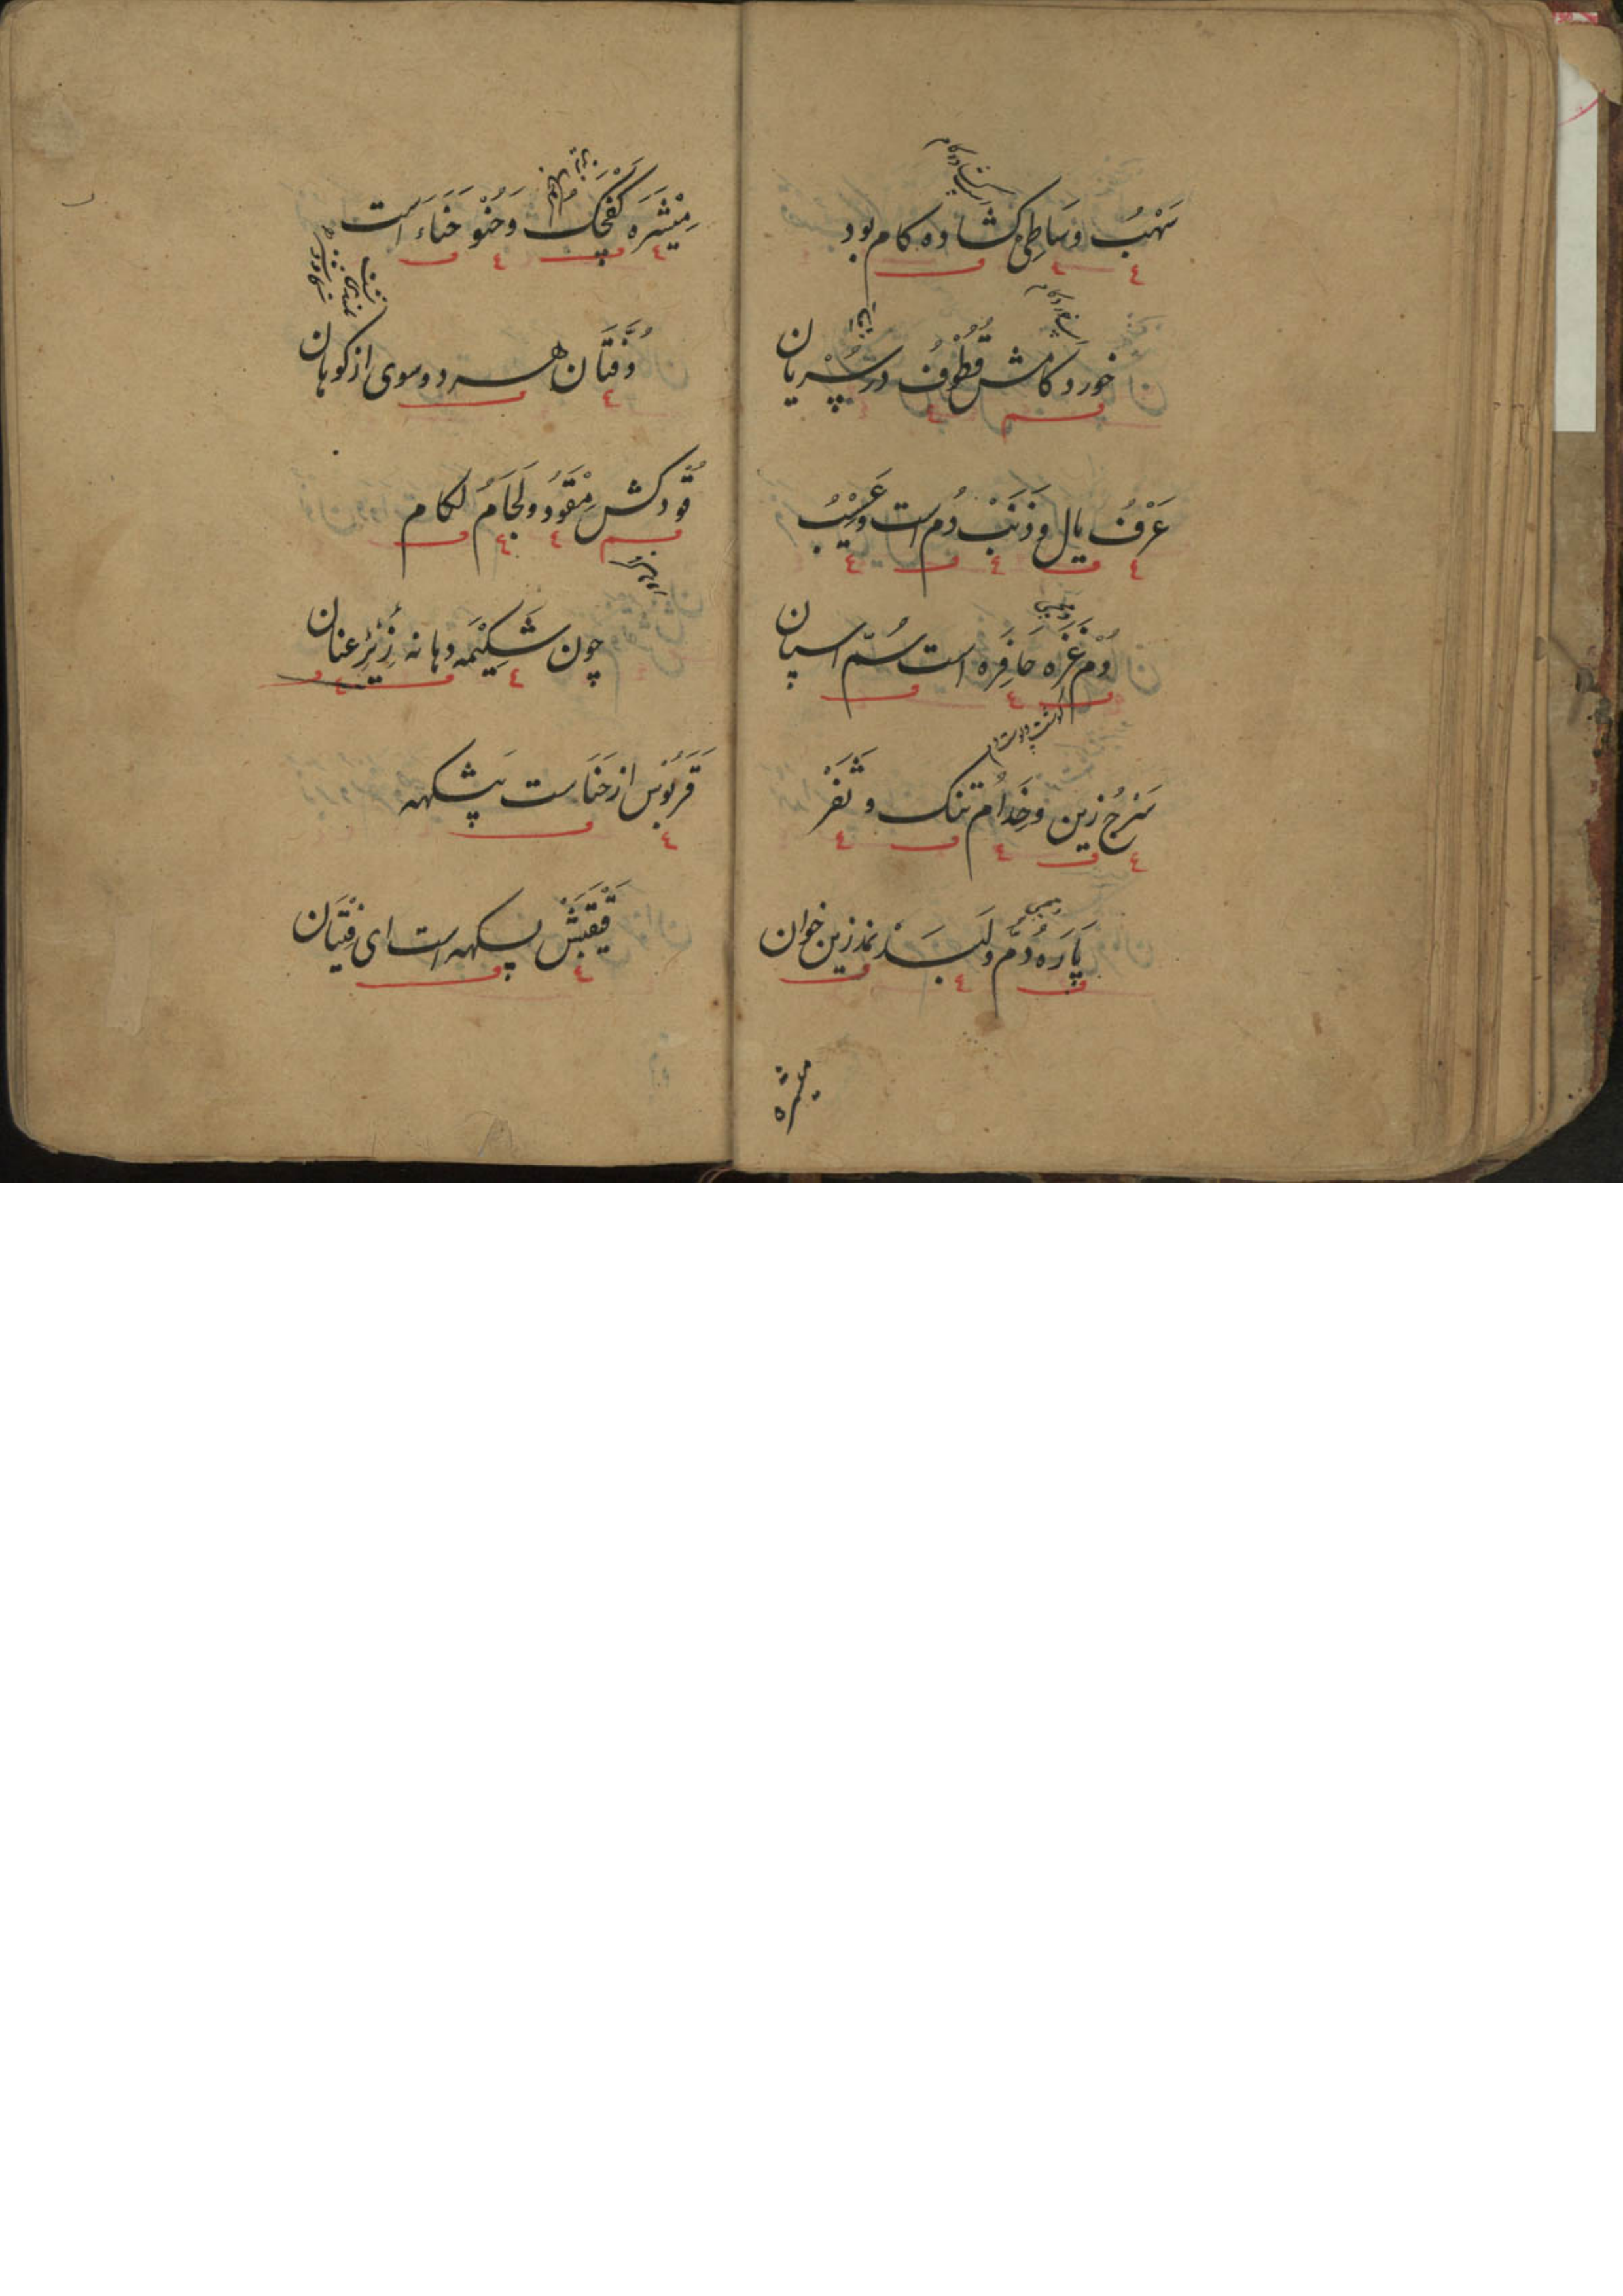 سَهْبُ وَسَاطِی کشاده کام بود
خورد کامش قُطُوْفُ در سُپْریان
عَرْفُ یال و ذَنَبْ دُم است و عَسِیْبُ
دُم غَزَه حَافِرَه است سُمّ اسپان
سَرْجُ زین و خِدَام تنک و ثَفَرْ
پَارَهٔ دُمّ و لَبَدْ نمد زین خوان
میثره
مِیْثَرَه کَفْچَک وَ حُنْو حَنَاء است
دُفَّتَان هر دو سوی از کوهان
قُوْد کش مِقْوَدُ و لِجَامُ لکام
چون شَکِیْمَه دهانه زِئیْر عنان
قَرَبُوْس از حَنَاست پَشکهه
قَیْقَبَشْ پسکهه است ای فِتْیَان